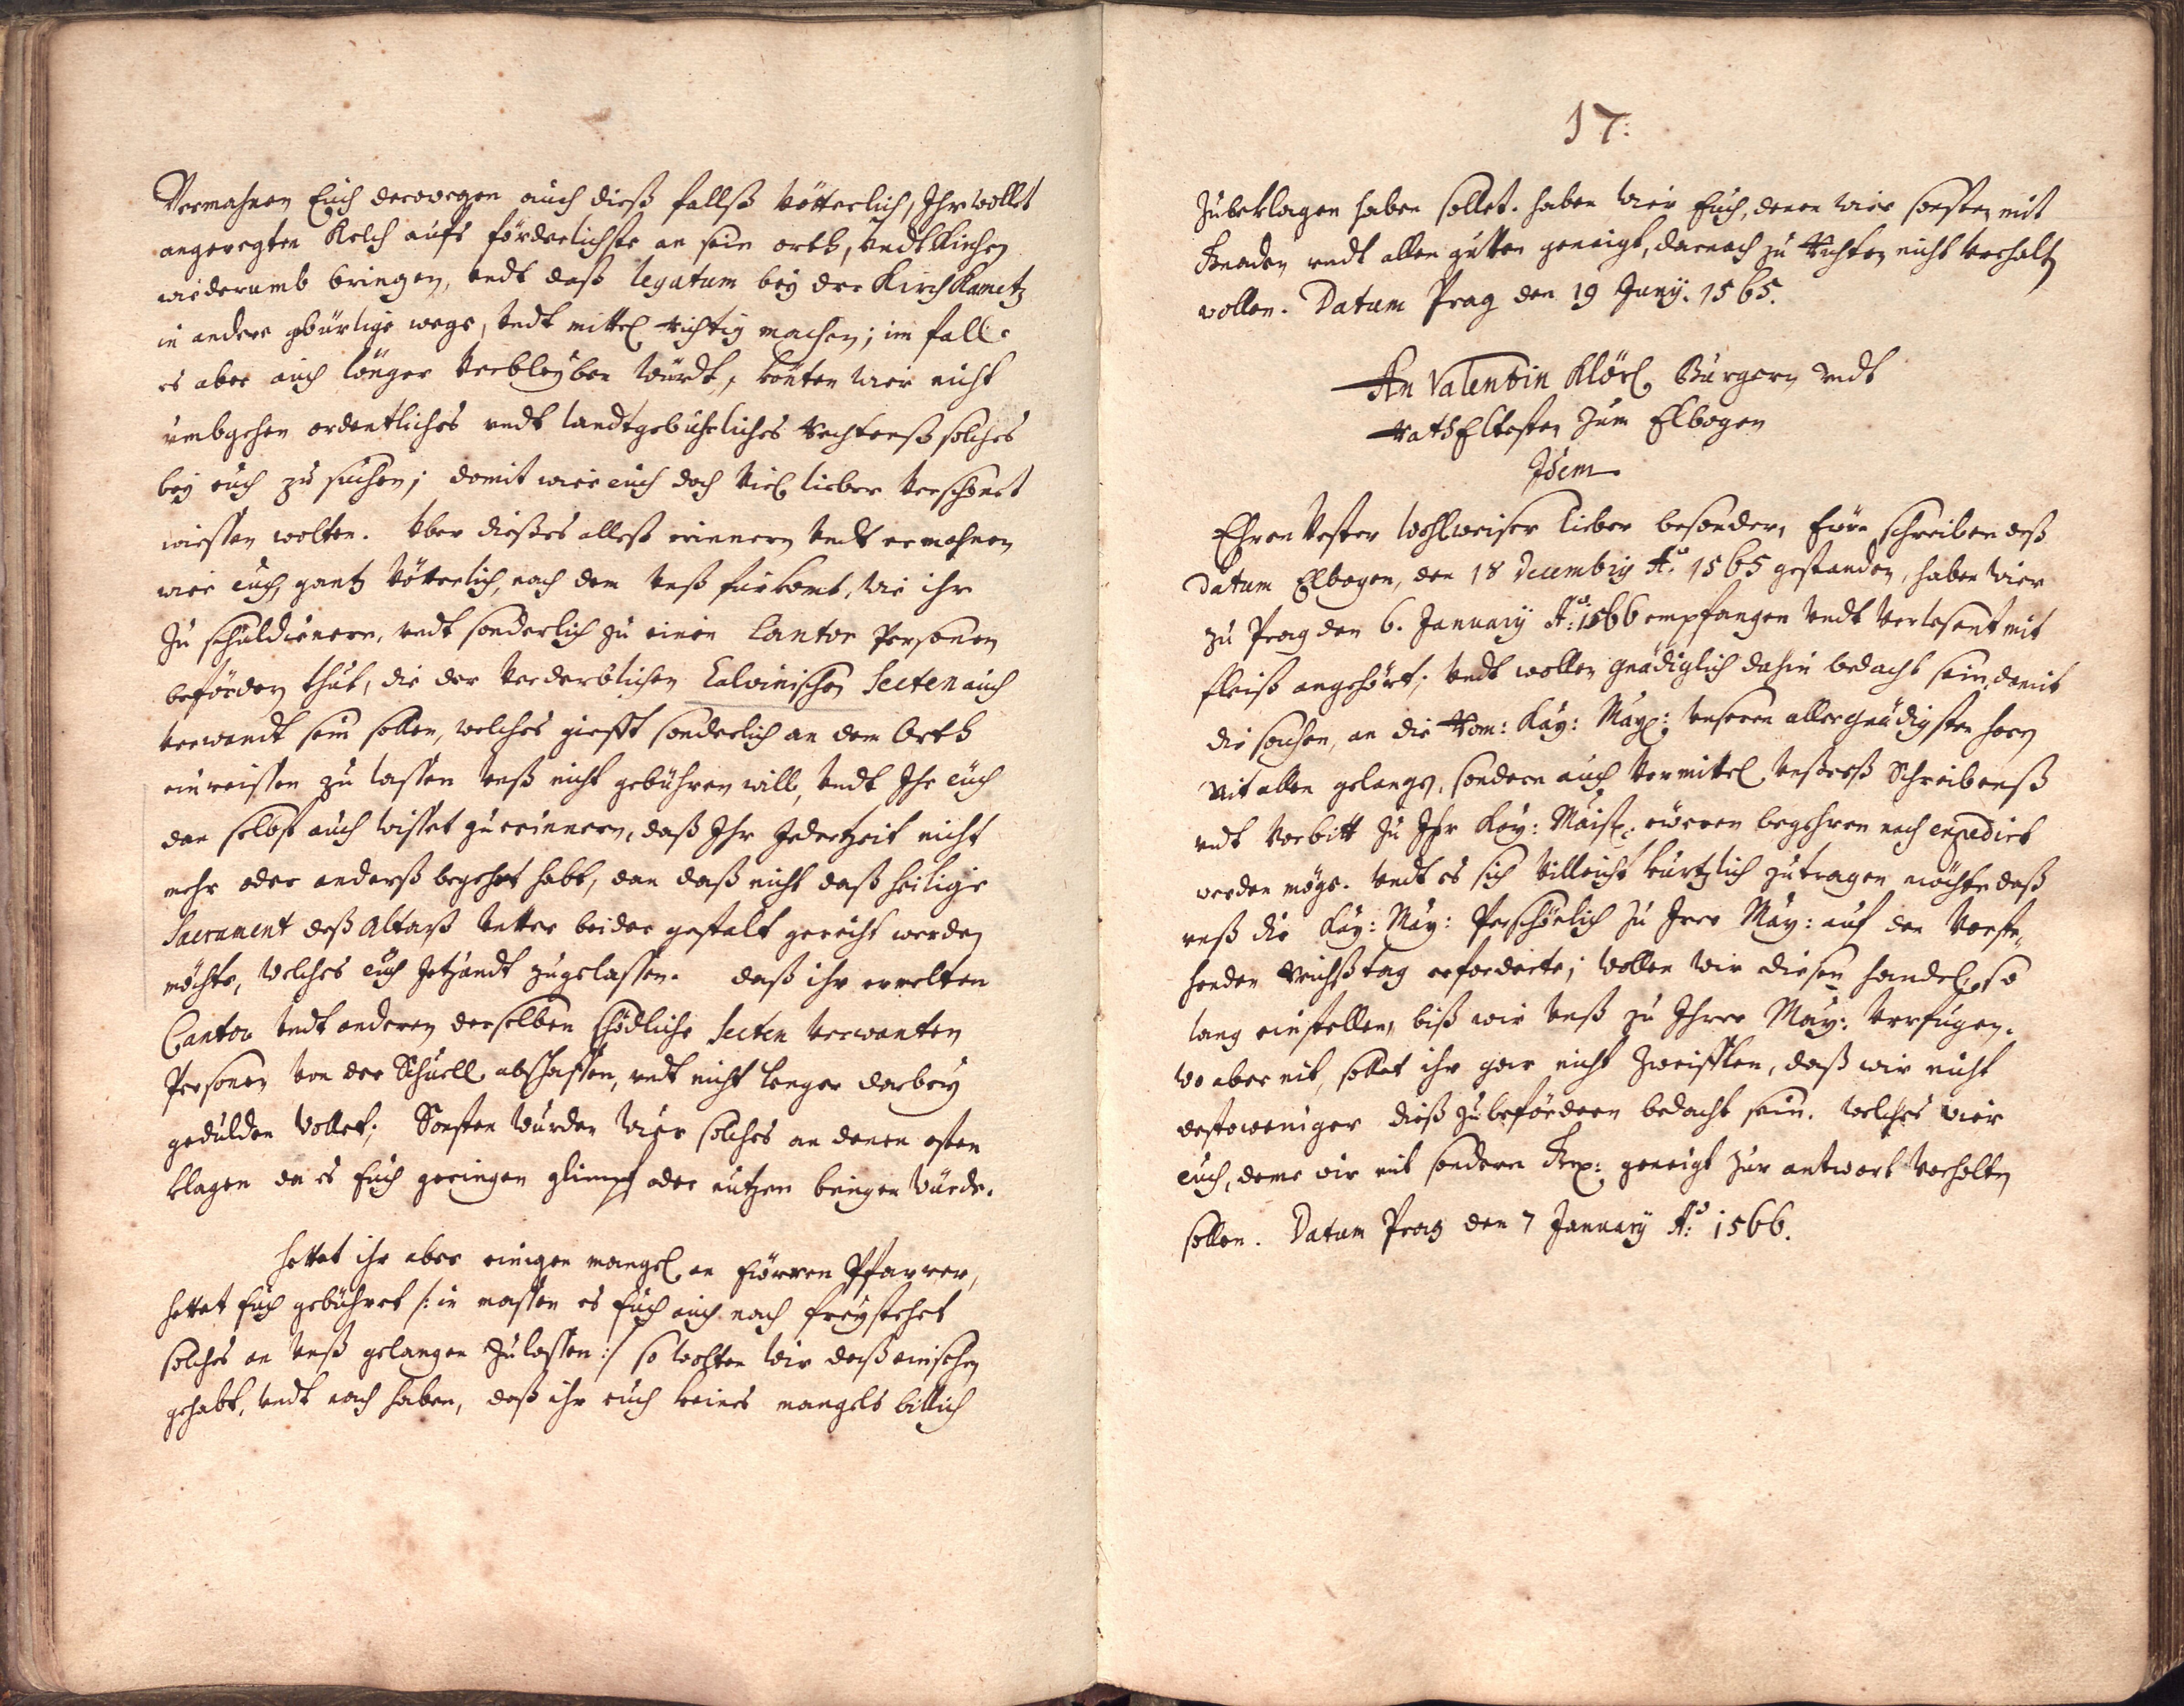 Vermahnen Euch derowegen auch dieß fallß vötterlich, Ihr wollet
angeregten Kelch aufs förderlichste an sein orth, vndt Kirchen
wiederumb bringen, vndt daß legatum bey der Kirch Kamitz
in andere gbürlige wege, vndt mittel richtig machen; im fall
es aber auch länger verbleyben würdt, könten wier nicht
vmbgehen ordentliches vndt landtgebührliches rechtenß solches
bey euch zu suchen; domit wier euch doch viel lieber verschonet
wiessen wolten. Vber dießes alleß erinnern vndt ermahnen
wier euch gantz vötterlich, nach dem vnß fürkomt, wie ihr
zu schuldienern, vndt sonderlich zu einen Cantor Personen
befördern thut, die der verderblichen Calvinischen Secten auch
verwandt sein sollen, welches giefft sonderlich an dem Orth
einreissen zu lassen vnß nicht gebühren will, vndt Ihr euch
dan selbst auch wisset zu erinnern, daß Ihr Jederzeit nicht
mehr oder anderß begehrt habt, dan daß nicht daß heilige
Sacrament deß Altarß vnter beider gestalt gereicht werden
möchte, welches euch Jetzundt zugelassen. daß ihr ermelten
Cantor vndt anderen derselben schödliche Secten verwanten
Personen von der Schuell abschaffen, vndt nicht lenger darbey
gedulden wollet; Sonsten wurden wier solches an denen orten
klagen da es Euch geringen glimpf oder nutzen bringen würde.
hettet ihr aber einigen mangel an Eüeren Pfarrer,
hettet Euch gebühret /: in massen es Euch auch noch freystehet
solches an vnß gelangen zulassen :/ so wolten wir daß einsehen
gehabt, vndt noch haben, daß ihr euch keines mangels billich
17:
zubeklagen haben sollet. haben wier Euch, denen wier sonsten mit
Gnaden vndt allen gutten geneigt, darnach zu richten nicht verhalten
wollen. Datum Prag den 19 Juny. 1565.
An Valentin Klörl Bürgern vndt
rathEltesten zum Elbogen
Idem
Ehrenvester Wohlweiser lieber besonder, Eüer schreiben deß
datum Elbogen, den 18 Decembris A.o 1565 gestanden, haben wier
zu Prag den 6. January A.o 1566 empfangen vndt verlesent mit
fleiß angehört; vndt wollen gnädiglich dahin bedacht sein, domit
die sachen, an die Röm: Kay: May: vnseren allergnädigsten herrn
nit allen gelange, sondern auch vermittel vnßerß Schreibenß
vndt vorbitt zu Ihr Kay: Maist: eüeren begehren nach expedirt
werden möge. vndt es sich villeicht kürtzlich zutragen möchte daß
vnß die Kay: May: Persöhnlich zu Irer May: auf den vorste
henden reichßtag erforderte; wollen wir diesen handel so
lang einstellen, biß wir vnß zu Ihrer May: verfügen.
wo aber nit, sollet ihr gar nicht zweifflen, daß wir nicht
destoweniger dieß zubefördern bedacht sein. welches wier
euch, deme wir mit sondern geneigt zur antwort verhalten
sollen. Datum Prag den 7 January A.o 1566.